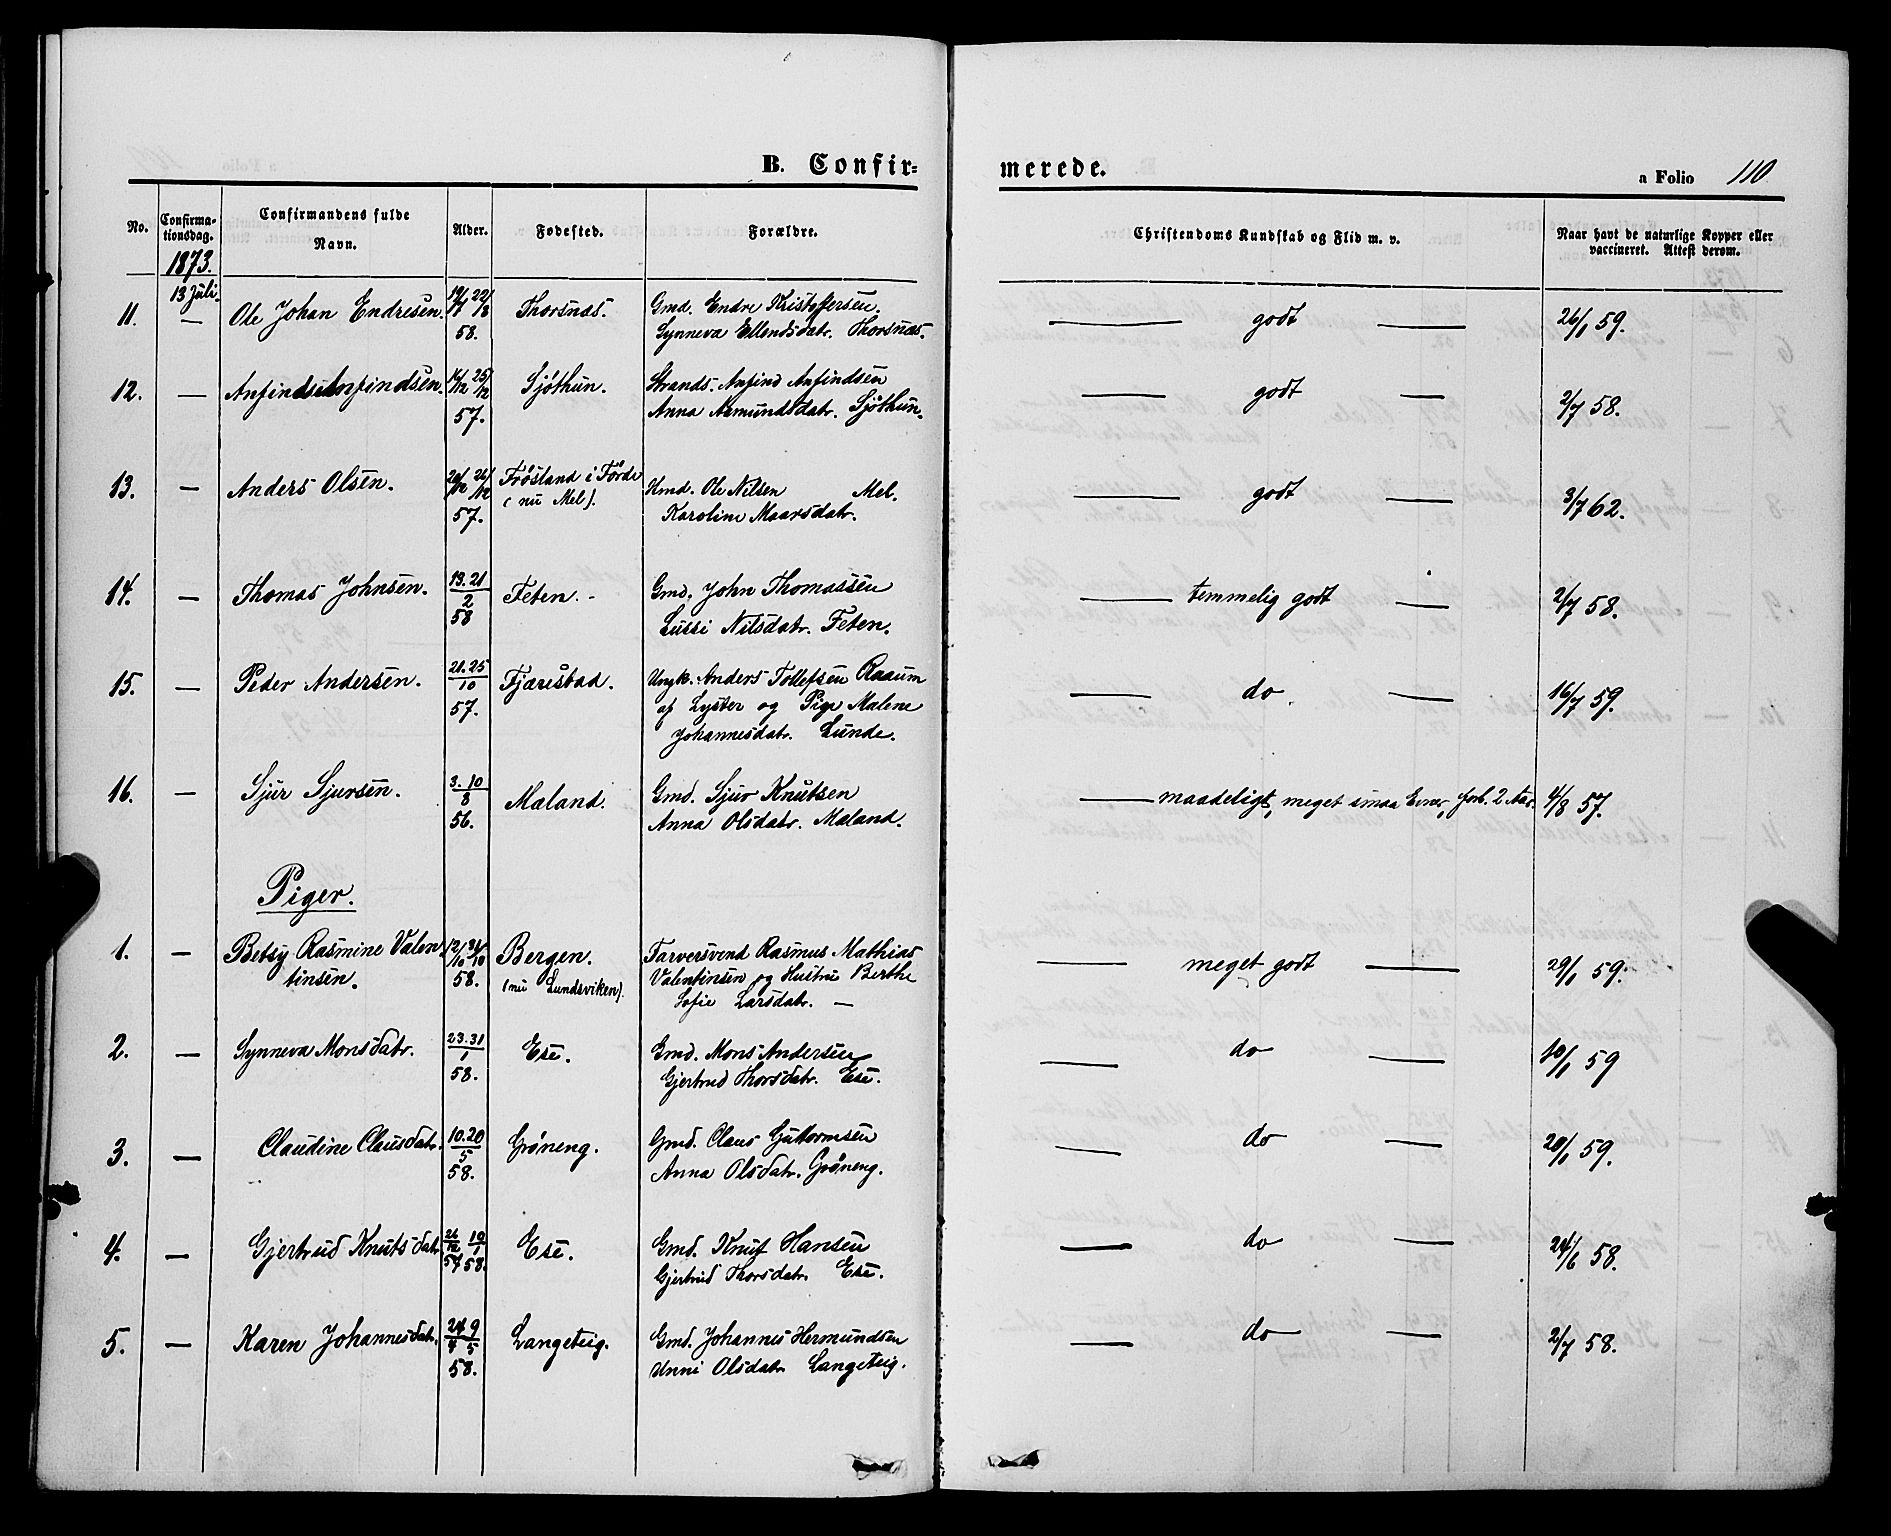 B. Confir=
merede.
a Folio 110
No.
Confirma-
tionsdag.
Confirmandens fulde
Navn.
Alder.
Fødested.
Forældre.
Christendoms Kundskab og Flid m. v.
Naar havt de naturlige Kopper eller
vaccineret. Attest derom.
1873.
13 Juli.
11. — Ole Johan Endresen. 58. Thorsnæs. Gmd. Endre Kristoffersen.
Synneva Ellendsdatr. Thorsnæs.
— godt — 26/1 59.
12. — Anfindsen. 57. Sjøthun. Strands. Anfind Anfindsen
Anna Asmundsdatr. Sjøthun.
— godt — 2/7 58.
13. — Anders Olsen. 57. Frøsland i Førde
(nu Mel).
Hmd. Ole Nilsen Mel.
Karoline Maarsdatr.
— godt — 3/7 62.
14. — Thomas Johnsen. 13. 21
2
58
Feten. - Gmd. John Thomassen
Lussi Nilsdatr. Feten.
— temmelig godt — 2/7 58.
15. — Peder Andersen. 21. 25
10
57.
Fjærestad. Ungk. Anders Tollefsen Raaum
af Lyster og Pige Malene
Johannesdatr. Lunde.
— do. — 16/7 59.
16. — Sjur Sjursen. 3. 10
8
56.
Mæland. Gmd. Sjur Knutsen
Anna Olsdatr. Mæland.
— maadeligt, meget smaa Evner, forb. 2 Aar. 4/8 57.
Piger.
1. — Betsy Rasmine Valen
tinsen.
12/10 31/10
58.
Bergen.
(nu Lundsviken).
Farversvend Rasmus Mathias
Valentinsen og Hustru Berthe
Sofie Larsdatr. —
— meget godt — 29/1 59.
2. — Synneva Monsdatr. 23. 31
1
58.
Ese. Gmd. Mons Andersen
Gjertrud Thorsdatr. Ese.
— do — 10/1 59
3. — Claudine Clausdatr. 10. 20
5
58.
Grøneng. Gmd. Claus Guttormsen
Anna Olsdatr. Grøneng.
— do — 20/1 59.
4. — Gjertrud Knutsdatr 26/12 10/1
57 58.
Ese. Gmd. Knut Hansen
Gjertrud Thorsdatr. Ese.
— do — 24/6 58.
5. — Karen Johannesdatr. 24 9
4 5
58.
Langeteig. Gmd. Johannes Hermundsen
Unni Olsdatr Langeteig.
— do — 2/7 58.